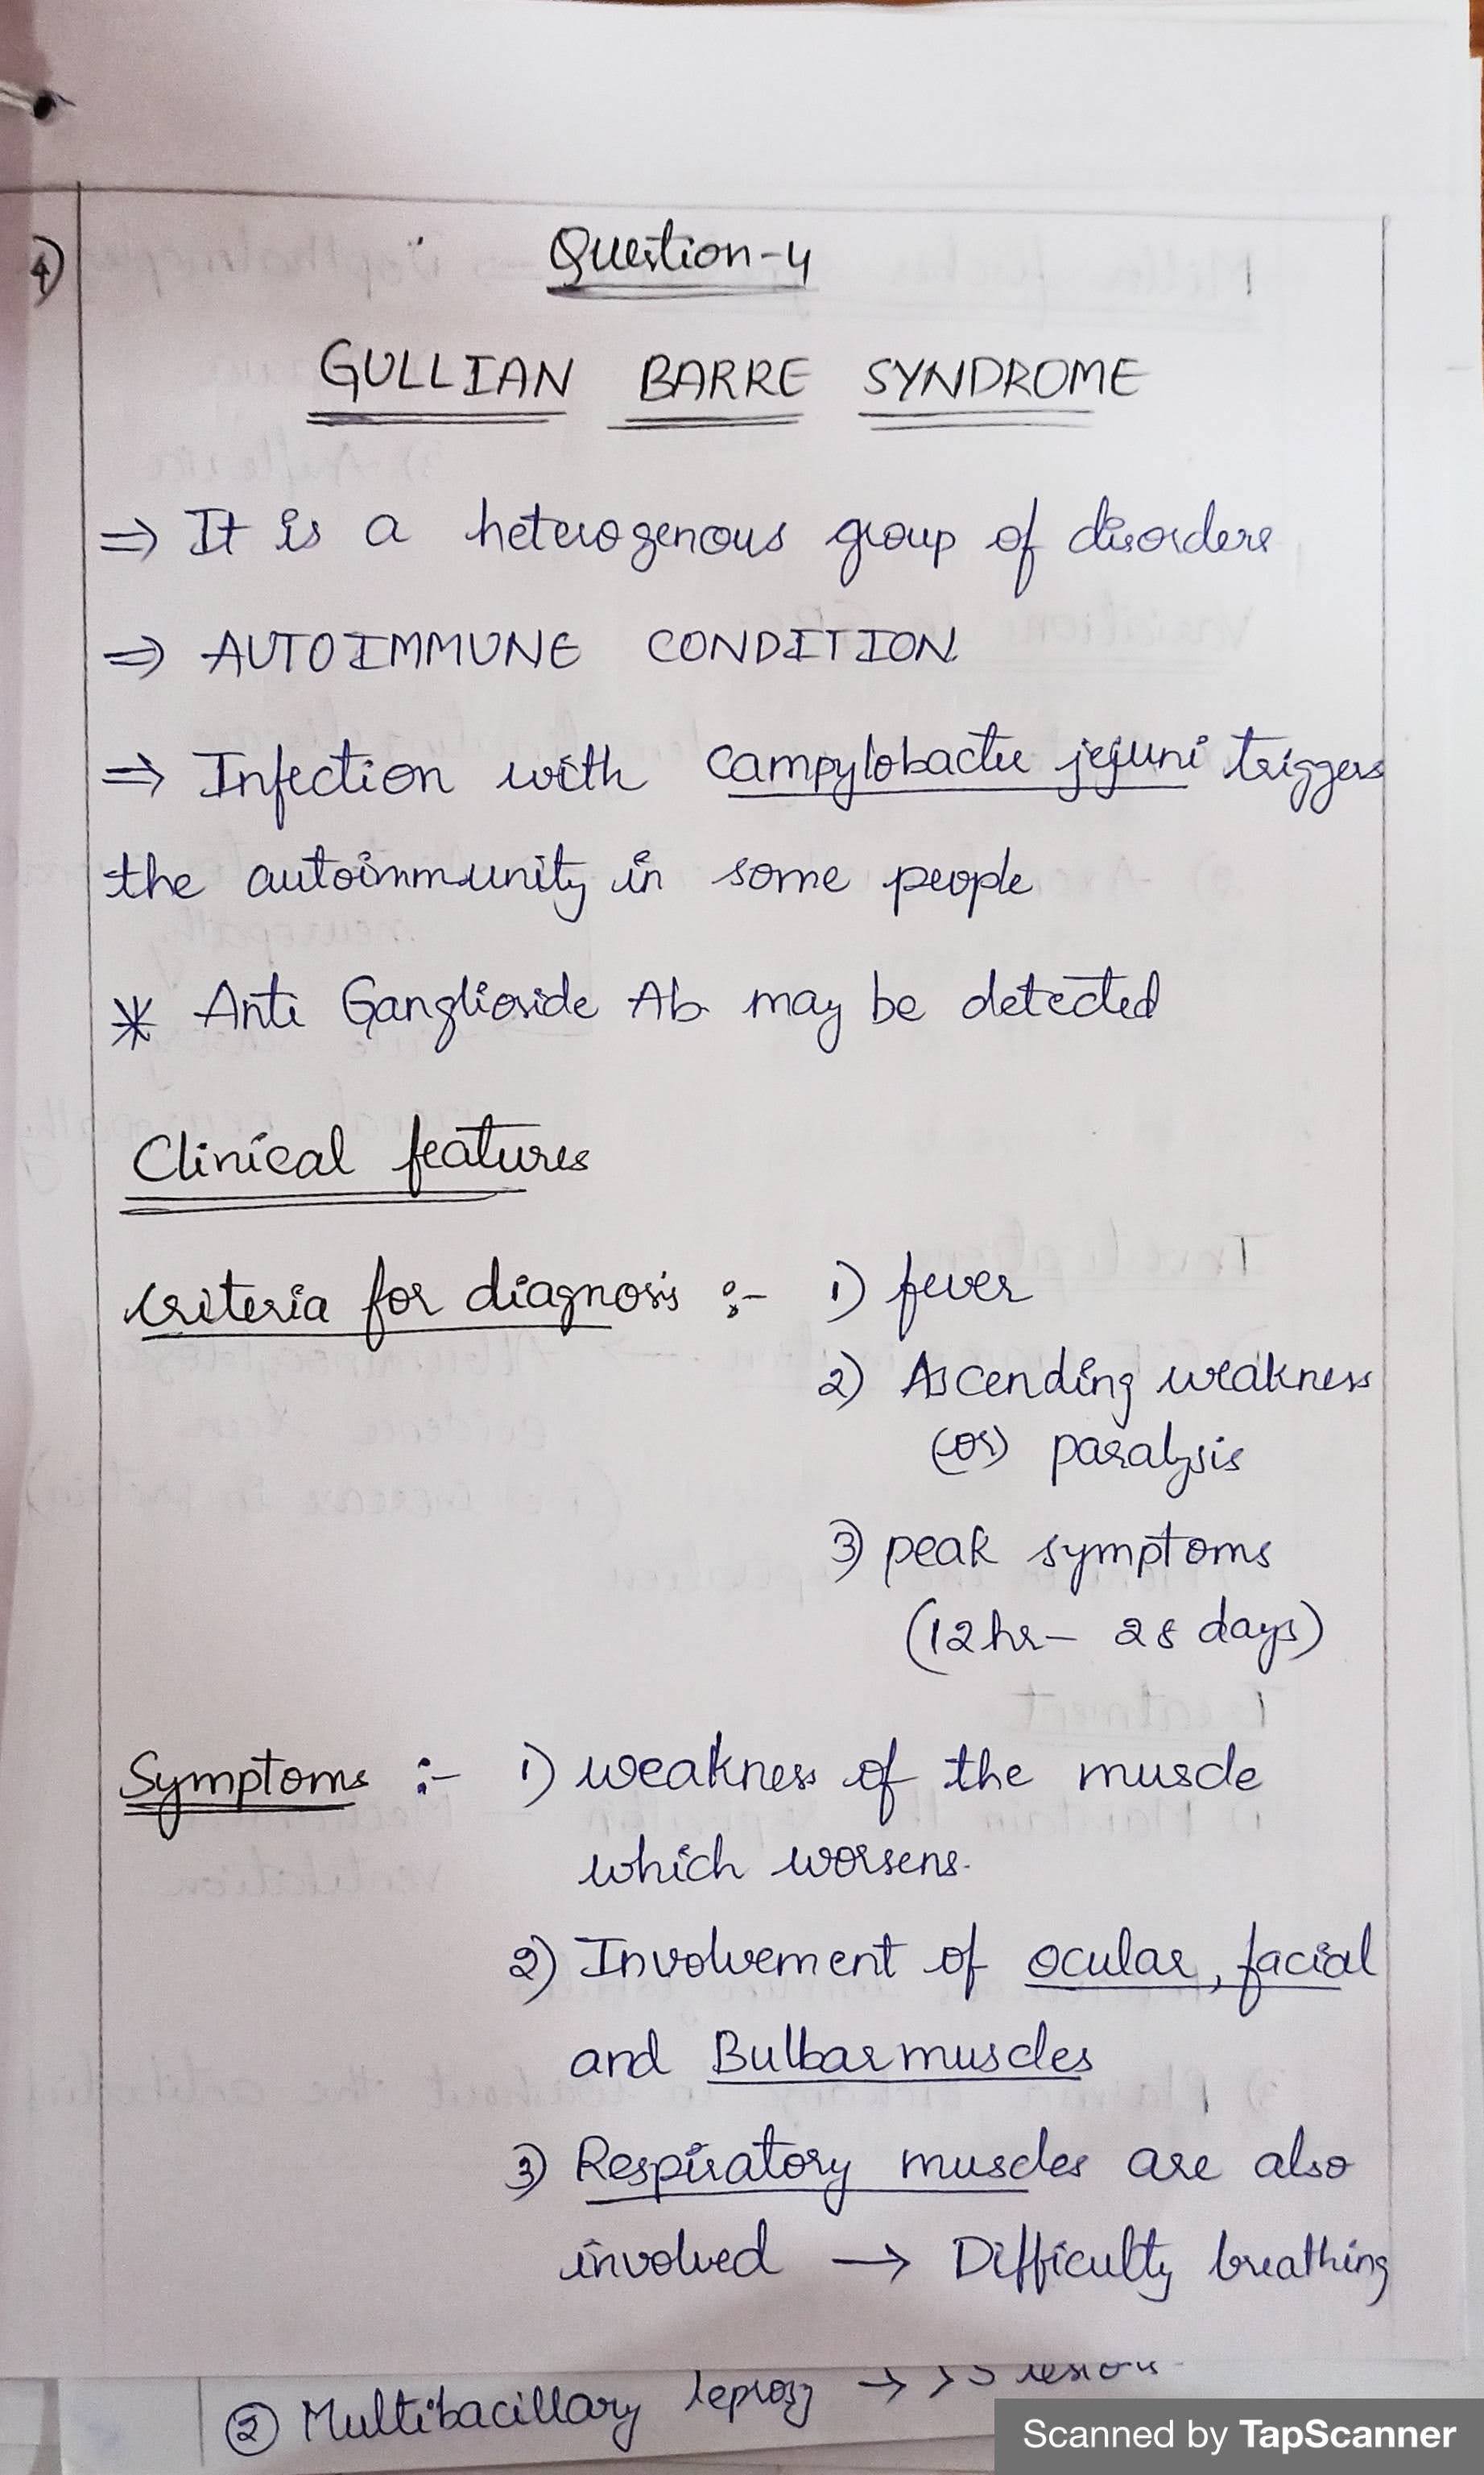 4)
Question-4
GULLIAN BARRE SYNDROME
⇒ It is a heterogenous group of disorders
⇒ AUTOIMMUNE CONDITION
⇒ Infection with Campylobacter jejuni triggers
the autoimmunity in some people
* Anti Ganglioside Ab may be detected
Clinical features
Criteria for diagnosis :- 1) fever
2) Ascending weakness
(or) paralysis
3) peak symptoms
(12hr – 28 days)
Symptoms :- 1) weakness of the muscle
which worsens.
2) Involvement of ocular, facial
and Bulbar muscles
3) Respiratory muscles are also
involved → Difficulty breathing
② Multibacillary leprosy → >5 lesions
Scanned by TapScanner